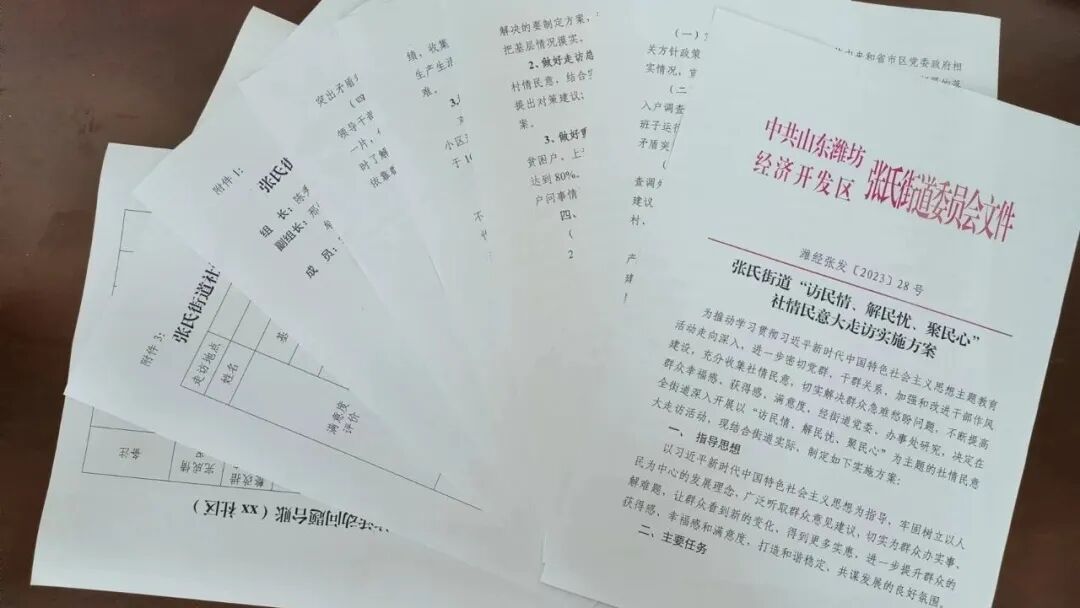 中共山东潍坊
经济开发区 张氏街道委员会文件
潍经张发〔2023〕28 号
张氏街道“访民情、解民忧、聚民心”
社情民意大走访实施方案
为推动学习贯彻习近平新时代中国特色社会主义思想主题教育
活动走向深入,进一步密切党群、干群关系,加强和改进干部作风
建设,充分收集社情民意,切实解决群众急难愁盼问题,不断提高
群众幸福感、获得感、满意度,经街道党委、办事处研究,决定在
全街道深入开展以“访民情、解民忧、聚民心”为主题的社情民意
大走访活动,现结合街道实际,制定如下实施方案:
一、指导思想
以习近平新时代中国特色社会主义思想为指导,牢固树立以人
民为中心的发展理念,广泛听取群众意见建议,切实为群众办实事、
解难题,让群众看到新的变化、得到更多实惠,进一步提升群众的
获得感、幸福感和满意度,打造和谐稳定、共谋发展的良好氛围。
二、主要任务
(一)
央和省市区党委政府相
关方针政策
实情况,
(二
入户调查
班子运行
矛盾突
(
查调
建议
村、
产
解决的要制定方案,
把基层情况摸实。
2、做好走访
村情民意,结合
提出对策建议;
案。
3、做好
贫困户、上
达到 80%。
户问事情
四、
(
2
绩、收集
生产生
难。
3、
小区
于 1
突出矛盾
(四
领导干
一片,
时了解
依靠
附件 1:
张氏街
组 长:陈
副组长:
成 员:
附件 3:
张氏街道社
走访地点
姓名
基
满意度
评价
备注
完成情
整改措
活动问题台账(xx 社区)